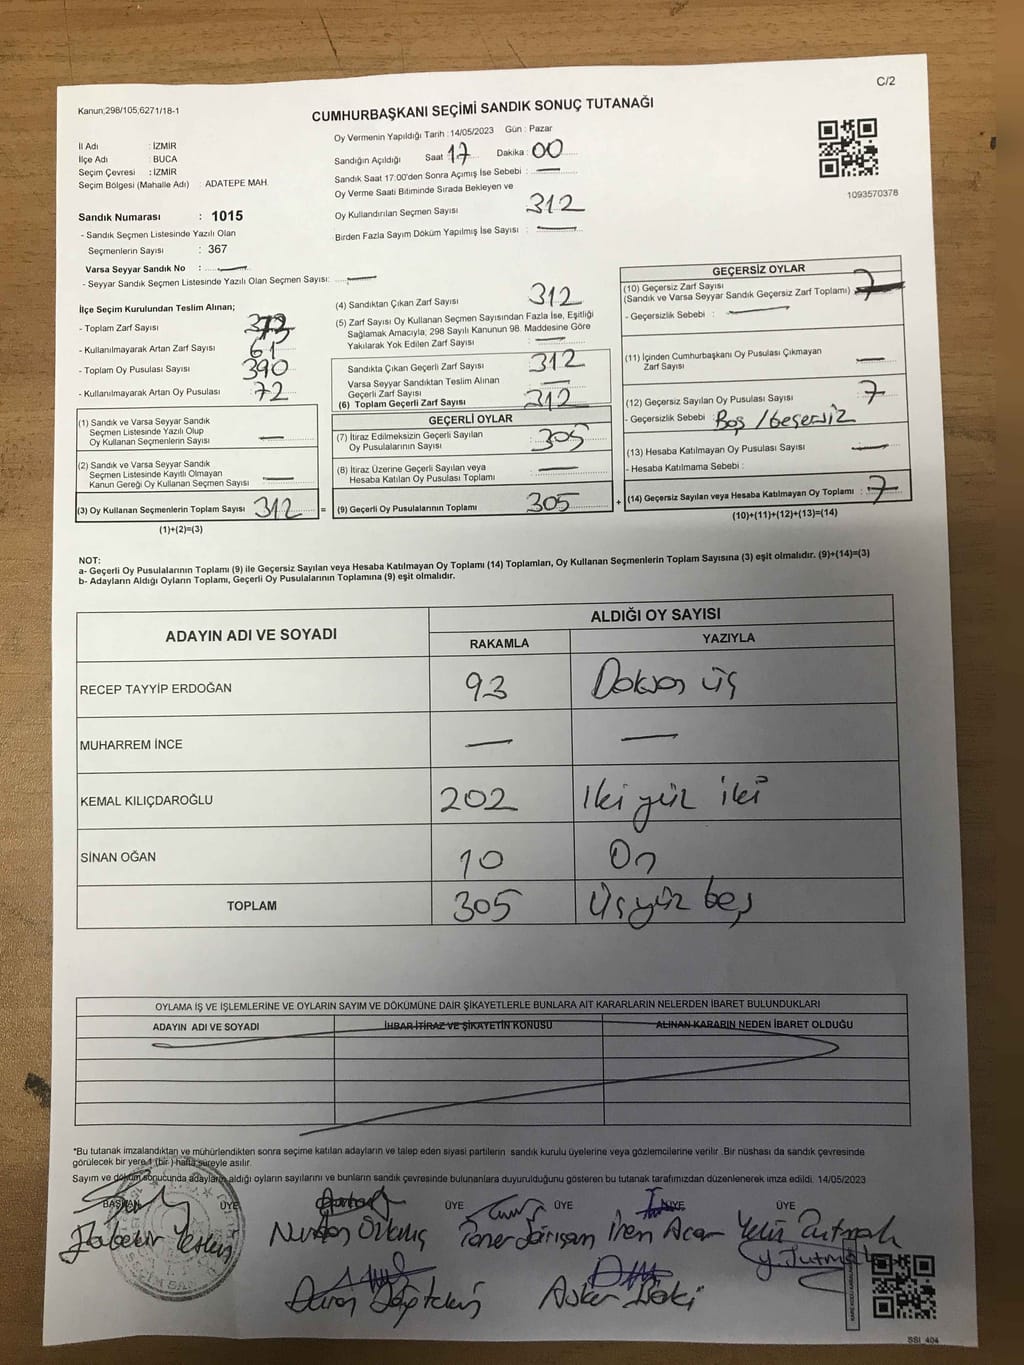 C/2
Kanun;298/105,6271/18-1
CUMHURBAŞKANI SEÇİMİ SANDIK SONUÇ TUTANAĞI
Oy Vermenin Yapıldığı Tarih : 14/05/2023 Gün : Pazar
İl Adı : İZMİR
İlçe Adı : BUCA
Seçim Çevresi : İZMİR
Seçim Bölgesi (Mahalle Adı) : ADATEPE MAH.
Sandığın Açıldığı Saat 17 Dakika : 00
Sandık Saat 17:00'den Sonra Açımış İse Sebebi : —
Oy Verme Saati Bitiminde Sırada Bekleyen ve
Oy Kullandırılan Seçmen Sayısı 312
Birden Fazla Sayım Döküm Yapılmış İse Sayısı : —
1093570378
Sandık Numarası : 1015
- Sandık Seçmen Listesinde Yazılı Olan
Seçmenlerin Sayısı : 367
Varsa Seyyar Sandık No : —
- Seyyar Sandık Seçmen Listesinde Yazılı Olan Seçmen Sayısı: —
İlçe Seçim Kurulundan Teslim Alınan;
- Toplam Zarf Sayısı
- Kullanılmayarak Artan Zarf Sayısı 61
- Toplam Oy Pusulası Sayısı 390
- Kullanılmayarak Artan Oy Pusulası : 72
(1) Sandık ve Varsa Seyyar Sandık
Seçmen Listesinde Yazılı Olup
Oy Kullanan Seçmenlerin Sayısı —
(2) Sandık ve Varsa Seyyar Sandık
Seçmen Listesinde Kayıtlı Olmayan
Kanun Gereği Oy Kullanan Seçmen Sayısı —
(3) Oy Kullanan Seçmenlerin Toplam Sayısı 312 =
(1)+(2)=(3)
(4) Sandıktan Çıkan Zarf Sayısı 312
(5) Zarf Sayısı Oy Kullanan Seçmen Sayısından Fazla İse, Eşitliği
Sağlamak Amacıyla, 298 Sayılı Kanunun 98. Maddesine Göre
Yakılarak Yok Edilen Zarf Sayısı : —
Sandıkta Çıkan Geçerli Zarf Sayısı 312
Varsa Seyyar Sandıktan Teslim Alınan
Geçerli Zarf Sayısı —
(6) Toplam Geçerli Zarf Sayısı 312
GEÇERLİ OYLAR
(7) İtiraz Edilmeksizin Geçerli Sayılan
Oy Pusulalarının Sayısı : 305
(8) İtiraz Üzerine Geçerli Sayılan veya
Hesaba Katılan Oy Pusulası Toplamı —
(9) Geçerli Oy Pusulalarının Toplamı 305 +
GEÇERSİZ OYLAR
(10) Geçersiz Zarf Sayısı
(Sandık ve Varsa Seyyar Sandık Geçersiz Zarf Toplamı)
- Geçersizlik Sebebi : —
(11) İçinden Cumhurbaşkanı Oy Pusulası Çıkmayan
Zarf Sayısı —
(12) Geçersiz Sayılan Oy Pusulası Sayısı : 7
- Geçersizlik Sebebi : Boş / Geçersiz
(13) Hesaba Katılmayan Oy Pusulası Sayısı : —
- Hesaba Katılmama Sebebi :
(14) Geçersiz Sayılan veya Hesaba Katılmayan Oy Toplamı : 7
(10)+(11)+(12)+(13)=(14)
NOT:
a- Geçerli Oy Pusulalarının Toplamı (9) ile Geçersiz Sayılan veya Hesaba Katılmayan Oy Toplamı (14) Toplamları, Oy Kullanan Seçmenlerin Toplam Sayısına (3) eşit olmalıdır. (9)+(14)=(3)
b- Adayların Aldığı Oyların Toplamı, Geçerli Oy Pusulalarının Toplamına (9) eşit olmalıdır.
ADAYIN ADI VE SOYADI ALDIĞI OY SAYISI
RAKAMLA YAZIYLA
RECEP TAYYİP ERDOĞAN 93 Doksan üç
MUHARREM İNCE — —
KEMAL KILIÇDAROĞLU 202 İki yüz iki
SİNAN OĞAN 10 On
TOPLAM 305 Üçyüz beş
OYLAMA İŞ VE İŞLEMLERİNE VE OYLARIN SAYIM VE DÖKÜMÜNE DAİR ŞİKAYETLERLE BUNLARA AİT KARARLARIN NELERDEN İBARET BULUNDUKLARI
ADAYIN ADI VE SOYADI İHBAR İTİRAZ VE ŞİKAYETİN KONUSU ALINAN KARARIN NEDEN İBARET OLDUĞU
*Bu tutanak imzalandıktan ve mühürlendikten sonra seçime katılan adayların ve talep eden siyasi partilerin sandık kurulu üyelerine veya gözlemcilerine verilir .Bir nüshası da sandık çevresinde
görülecek bir yere 1 (bir ) hafta süreyle asılır.
Sayım ve döküm sonucunda adayların aldığı oyların sayılarını ve bunların sandık çevresinde bulunanlara duyurulduğunu gösteren bu tutanak tarafımızdan düzenlenerek imza edildi. 14/05/2023
BAŞKAN ÜYE ÜYE ÜYE ÜYE ÜYE
İren Acar
Y. Tutmak
SSI_404